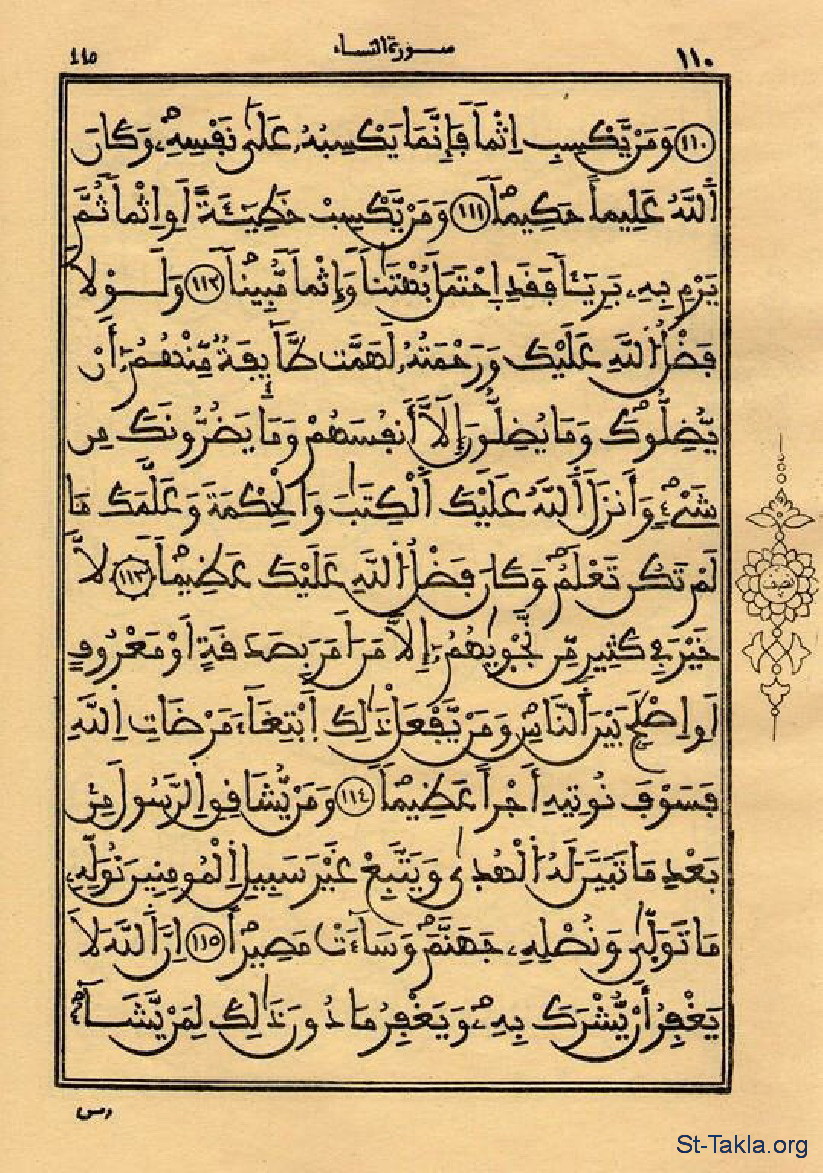 ١١٠ سورة النساء ١١٥
١١٠ وَمَنْ يَّكْسِبِ اِثْماً فَإِنَّمَا يَكْسِبُهُۥ عَلَىٰ نَفْسِهِۦ وَكَانَ
اَ۬للَّهُ عَلِيماً حَكِيماً ١١١ وَمَنْ يَّكْسِبْ خَطِيٓـَٔةً اَوِ اِثْماً ثُمَّ
يَرْمِ بِهِۦ بَرِيٓـٔاً فَقَدِ اِ۪حْتَمَلَ بُهْتَٰناً وَإِثْماً مُّبِيناً ١١٢ وَلَوْلَا
فَضْلُ اُ۬للَّهِ عَلَيْكَ وَرَحْمَتُهُۥ لَهَمَّت طَّآئِفَةٌ مِّنْهُمُۥٓ أَنْ
يُّضِلُّوكَ وَمَا يُضِلُّونَ إِلَّآ أَنفُسَهُمْ وَمَا يَضُرُّونَكَ مِن
شَيْءٍ وَأَنزَلَ اَ۬للَّهُ عَلَيْكَ اَ۬لْكِتَٰبَ وَالْحِكْمَةَ وَعَلَّمَكَ مَا
لَمْ تَكُن تَعْلَمُ وَكَانَ فَضْلُ اُ۬للَّهِ عَلَيْكَ عَظِيماً ١١٣ لَّا
خَيْرَ فِي كَثِيرٍ مِّن نَّجْوٜيٰهُمُۥٓ إِلَّا مَنَ اَمَرَ بِصَدَقَةٍ اَوْ مَعْرُوفٍ
اَوِ اِصْلَٰحٍ بَيْنَ اَ۬لنَّاسِ وَمَنْ يَّفْعَلْ ذَٰلِكَ اَ۪بْتِغَآءَ مَرْضَاتِ اِ۬للَّهِ
فَسَوْفَ نُوتِيهِ أَجْراً عَظِيماً ١١٤ وَمَنْ يُّشَاقِقِ اِ۬لرَّسُولَ مِنۢ
بَعْدِ مَا تَبَيَّنَ لَهُ اُ۬لْهُدٜىٰ وَيَتَّبِعْ غَيْرَ سَبِيلِ اِ۬لْمُومِنِينَ نُوَلِّهِۦ
مَا تَوَلّٜىٰ وَنُصْلِهِۦ جَهَنَّمَ وَسَآءَتْ مَصِيراً ١١٥ اِنَّ اَ۬للَّهَ لَا
يَغْفِرُ أَنْ يُّشْرَكَ بِهِۦ وَيَغْفِرُ مَا دُونَ ذَٰلِكَ لِمَنْ يَّشَآءُ
نصف
ومن
St-Takla.org